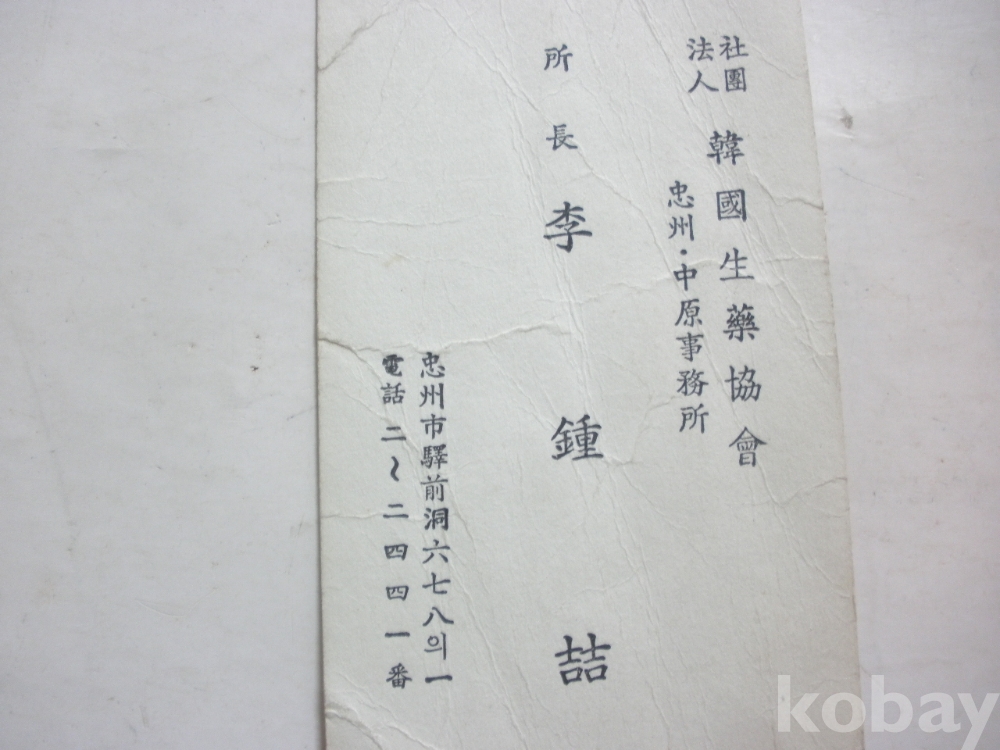 社團
法人
韓國生藥協會
忠州·中原事務所
所長 李鍾喆
忠州市驛前洞六七八의一
電話 二~二四四一番
kobay